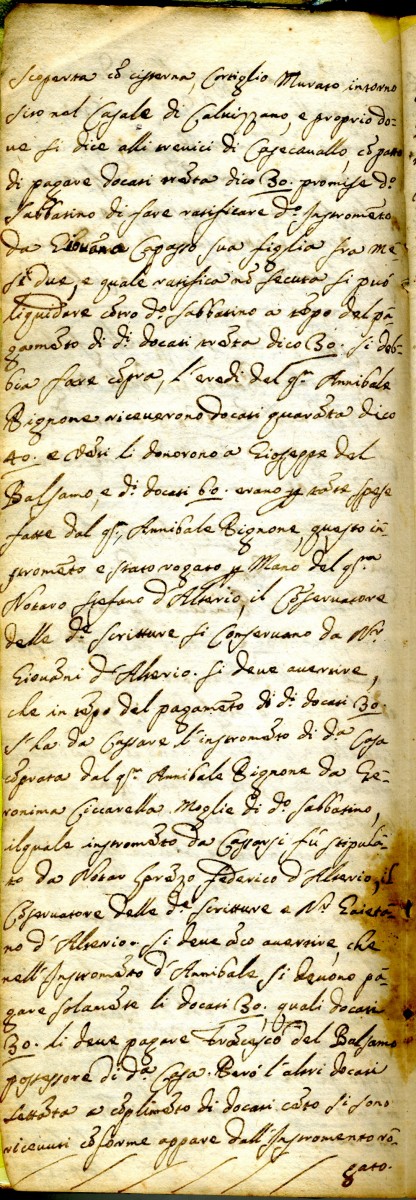 scoperta cõ cisterna, Cortiglio Murato intorno
sito nel Casale di Caluizzano, e proprio do-
ue si dice alli trenici di Casecauallo, cõ patto
di pagare docati trẽta dico 30. promise dº
Sabbatino di fare ratificare dº Instromẽto
da Giouãna Capasso sua figlia fra me
si due, e quale ratifica nõ secuta si può
liquidare cõtro dº Sabbatino a tẽpo del pa-
gamẽto di dⁱ docati trẽta dico 30. si deb-
bea fare cõpra, l'eredi del qᵐ Annibale
Pignone riceuerono docati quarãta dico
40. e uẽti li donorono a Gioseppe del
Balsamo, e dⁱ docati 60. erano ꝑ tãte spese
fatte dal qᵐ Annibale Pignone, questo in-
stromẽto è stato rogato ꝑ Mano del qᵐ
Notaro Stefano d'Alterio, il Cõseruatore
delle dᵉ Scritture si Conseruano da Nʳ
Giouãni d'Alterio. si deue auertire,
che in tẽpo del pagamẽto di dⁱ docati 30.
s'ha da Cassare l'instromẽto di dª Casa
cõprata dal qᵐ Annibale Pignone da Ge-
ronima Ciccarella Moglie di dº Sabbatino,
il quale instromẽto da Cassarsi fù stipula-
to da Notar Lorẽzo Federico d'Alterio, il
Cõseruatore delle dᵉ Scritture è Nʳ Gaieta-
no d'Alterio. si deue ãco auertire, che
nell'Instromẽto d'Annibale si deuono pa-
gare solamẽte li docati 30. quali docati
30. li deue pagare Frãcesco del Balsamo
possessore di dª Casa. Però l'altri docati
settãta a cõplimẽto di docati cẽto si sono
riceuuti cõforme appare dall'Instromento ro-
gato.